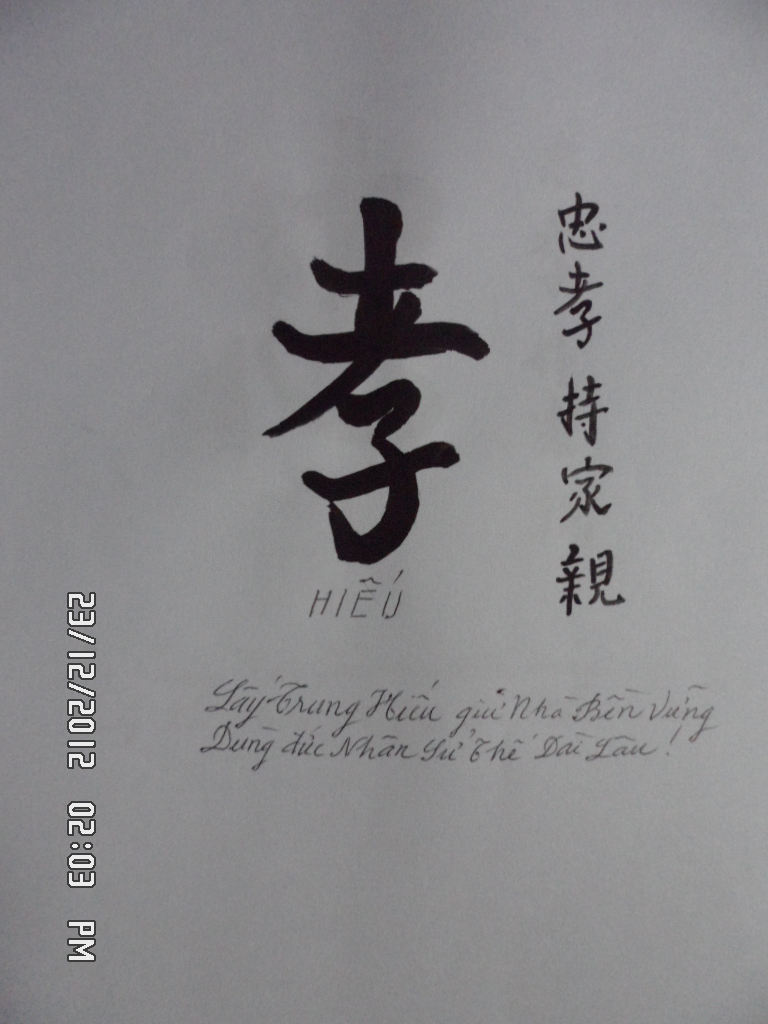 孝
忠孝持家親
HIẾU
Lấy Trung Hiếu giữ Nhà Bền Vững
Dùng đức Nhân Xử Thế Dài Lâu !
23/12/2012 02:03 PM